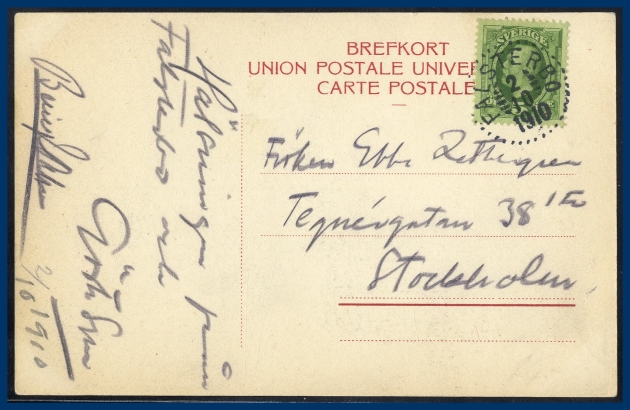 BREFKORT
UNION POSTALE UNIVER
CARTE POSTALE
SVERIGE
FALSTERBO
2
10
1910
Fröken Ebba Zettergren
Tegnérgatan 38 I tr
Stockholm
Hälsningar från
Falsterbo och
Gösta
2/6 1910